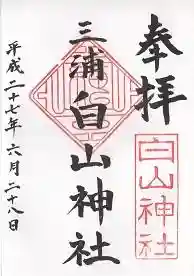 奉拝
三浦白山神社
白山神社
平成二十七年六月二十八日